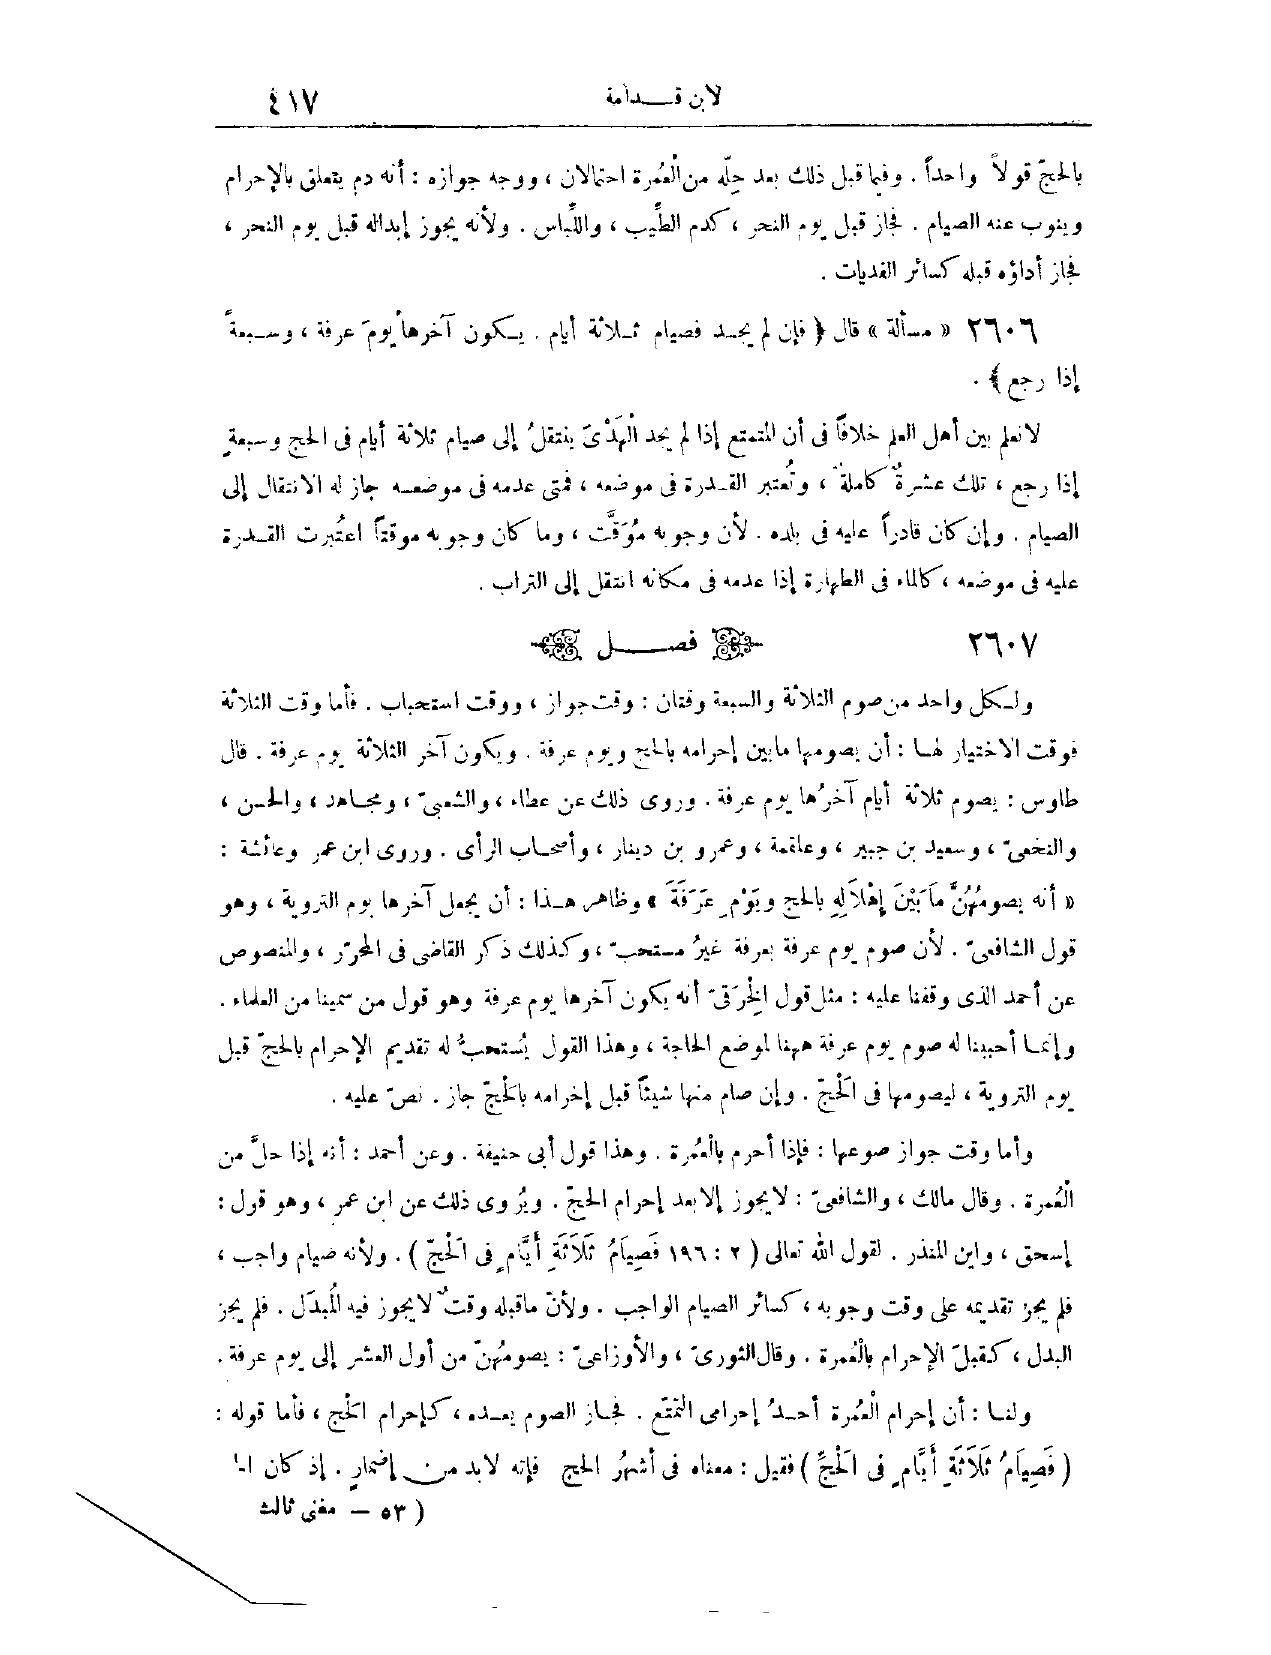 لابن قدامة ٤١٧
بالحجّ قولاً واحداً . وفيما قبل ذلك بعد حِلّه من الْعُمرة احتمالان ، ووجه جوازه : أنه دم يتعلق بالإحرام
وينوب عنه الصيام . فجاز قبل يوم النحر ، كدم الطِّيب ، واللِّباس . ولأنه يجوز إبداله قبل يوم النحر ،
فجاز أداؤه قبله كسائر الفديات .
٢٦٠٦ « مسألة » قال ﴿ فإن لم يجد فصيام ثلاثة أيام . يكون آخرها يومَ عرفة ، وسبعةً
إذا رجع ﴾ .
لانعلم بين أهل العلم خلافاً فى أن المتمتع إذا لم يجد الْهَدْىَ ينتقلُ إلى صيام ثلاثة أيام فى الحج وسبعةٍ
إذا رجع ، تلك عشرةٌ كاملةٌ ، وتُعتبر القدرة فى موضعه ، فمتى عدمه فى موضعه جاز له الانتقال إلى
الصيام . وإن كان قادراً عليه فى بلده . لأن وجوبه مُوَقَّت ، وما كان وجوبه موقتاً اعتُبرت القدرة
عليه فى موضعه ، كالماء فى الطهارة إذا عدمه فى مكانه انتقل إلى التراب .
٢٦٠٧ فصل
ولكل واحد من صوم الثلاثة والسبعة وقتان : وقت جواز ، ووقت استحباب . فأما وقت الثلاثة
فوقت الاختيار لها : أن يصومها مابين إحرامه بالحج ويوم عرفة . ويكون آخر الثلاثة يوم عرفة . قال
طاوس : يصوم ثلاثة أيام آخرُها يوم عرفة . وروى ذلك عن عطاء ، والشعبىّ ، ومجاهد ، والحسن ،
والنخعىّ ، وسعيد بن جبير ، وعلقمة ، وعمرو بن دينار ، وأصحاب الرأى . وروى ابن عمر وعائشة :
« أنه يصومُهُنَّ مَابَيْنَ إِهْلَالِهِ بالحج ويَوْمِ عَرَفَةَ » وظاهر هذا : أن يجعل آخرها يوم التروية ، وهو
قول الشافعىّ . لأن صوم يوم عرفة بعرفة غيرُ مستحبّ ، وكذلك ذكر القاضى فى المحرّر ، والمنصوص
عن أحمد الذى وقفنا عليه : مثل قول الخِرَقىّ أنه يكون آخرها يوم عرفة وهو قول من سمينا من العلماء .
وإنما أحببنا له صوم يوم عرفة ههنا لموضع الحاجة ، وهذا القول يُستحبُّ له تقديم الإحرام بالحجّ قبل
يوم التروية ، ليصومها فى الْحَجّ . وإن صام منها شيئاً قبل إخرامه بالْحَجّ جاز . نصّ عليه .
وأما وقت جواز صومها : فإذا أحرم بالْعُمرة . وهذا قول أبى حنيفة . وعن أحمد : أنه إذا حلَّ من
الْعُمرة . وقال مالك ، والشافعىّ : لايجوز إلابعد إحرام الحجّ . ويُروى ذلك عن ابن عمر ، وهو قول :
إسحق ، وابن المنذر . لقول الله تعالى ( ٢ : ١٩٦ فَصِيَامُ ثَلَاثَةِ أَيَّامٍ فى الْحَجّ ) . ولأنه صيام واجب ،
فلم يجز تقديمه على وقت وجوبه ، كسائر الصيام الواجب . ولأنّ ماقبله وقتٌ لايجوز فيه الْمُبدَل . فلم يجز
البدل ، كقبل الإحرام بالْعُمرة . وقال الثورىّ ، والأوزاعىّ : يصومُهنّ من أول العشر إلى يوم عرفة .
ولنا : أن إحرام الْعُمرة أحدُ إحرامى التمتّع . فجاز الصوم بعده ، كإحرام الحَج ، فأما قوله :
( فَصِيَامُ ثَلَاثَةِ أَيَّامٍ فى الْحَجِّ ) فقيل : معناه فى أشهرُ الحج فإنه لابد من إضمارٍ . إذ كان
( ٥٣ – مغنى ثالث